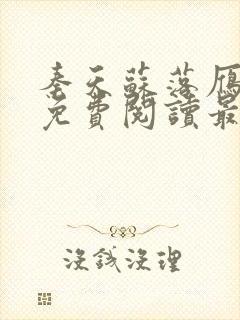 秦天蘇落雁
免費閱讀最
沒錢沒理